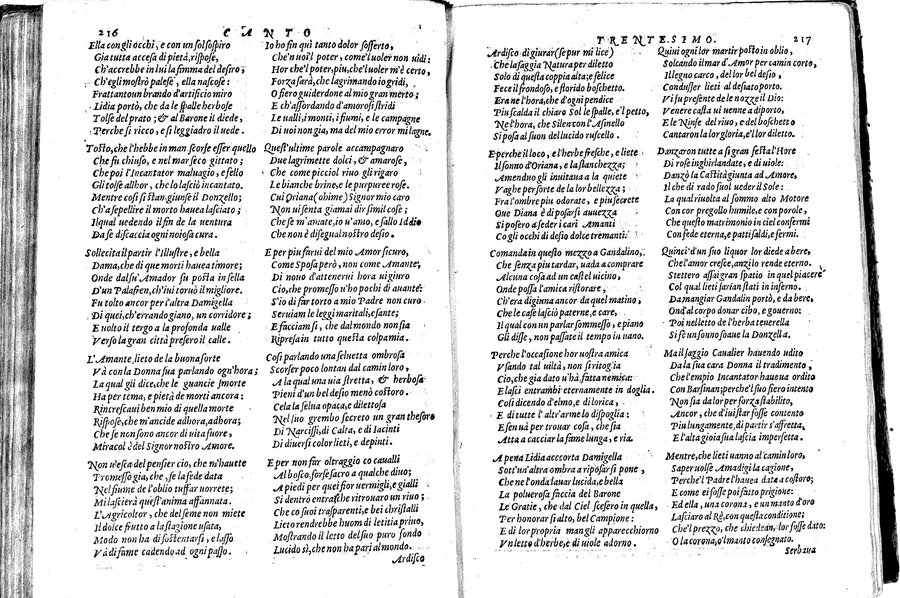 216 CANTO
Ella con gli occhi, e con un sol sospiro
Gia tutta accesa di pietà, rispose,
Ch'accrebbe in lui la fimma del desiro,
Ch'egli mostrò palese, ella nascose;
Frattanto un brando d'artificio miro
Lidia portò, che da le spalle herbose
Tolse del prato; & al Barone il diede,
Perche si ricco, e si leggiadro il uede.
Tosto, che l'hebbe in man scorse esser quello
Che fu chiuso, e nel mar seco gittato;
Che poi l'Incantator maluagio, e fello
Gli tolse allhor, che lo lasciò incantato.
Mentre cosi si stan, giunse il Donzello;
Ch'a sepellire il morto hauea lasciato;
Il qual uedendo il fin de la uentura
Da se discaccia ogni noiosa cura.
Sollecita il partir l'Illustre, e bella
Dama, che di que morti hauea timore;
Onde dassi'u Amador su posta in sella
D'un Palafren, ch'iui trouò il migliore.
Fu tolto ancor per l'altra Damigella
Di quei, ch'errando giano, un corridore;
E uolto il tergo a la profonda ualle
Verso la gran città preser o il calle.
L'Amante, lieto de la buona sorte
Và con la Donna sua parlando ogn'hora;
La qual gli dice, che le guancie smorte
Ha per tema, e pietà de morti ancora:
Rincrescaui ben mio di quella morte
Rispose, che m'ancide adhora, adhora;
Che se non sono ancor di uita fuore,
Miracol è del Signor nostro Amore.
Non u'esca del pensier cio, che m'hauete
Promesso gia, che se la fede data
Nel fiume de l'oblio tuffar uorrete;
Mi lascierà quest'anima affannata.
L'Agricoltor, che del seme non miete
Il dolce frutto a la stagione usata,
Modo non ha di sostentarsi, e lasso
Và di fame cadendo ad ogni passo.
Io ho fin quì tanto dolor sofferto,
Che n'uoi l poter, come l'uoler non uidi:
Hor che'l poter, piu, che'l uoler m'è certo,
Forza sarà, che lagrimando io gridi;
O fiero guiderdone al mio gran merto;
E ch'assordando d'amorosi stridi
Le ualli, i monti, i fiumi, e le campagne
Di uoi non gia, ma del mio error mi lagne.
Quest'ultime parole accompagnaro
Due lagrimette dolci, & amorose,
Che come picciol riuo gli rigaro
Le bianche brine, e le purpuree rose.
Cui Oriana (ohime) Signor mio caro
Non ui senta giamai dir simil cose;
Che se m'amate, io u'amo, e sallo Iddio
Che non è disegual nostro desio.
E per piu farui del mio Amor sicuro,
Come Sposa però, non come Amante,
Di nouo d'attenerui hora ui giuro
Cio, che promesso u'ho pochi dì auante:
S'io di far torto a mio Padre non curo
Seruiam le leggi maritali, e sante;
E facciam sì, che dal mondo non sia
Ripresa in tutto questa colpa mia.
Cosi parlando una seluetta ombrosa
Scorser poco lontan dal camin loro,
A la qual una uia stretta, & herbosa
Pieni d'un bel desio menò costoro.
Cela la selua opaca, e dilettosa
Nel suo grembo secreto un gran thesoro
Di Narcissi, di Calta, e di Iacinti
Di diuersi color lieti, e depinti.
E per non far oltraggio co caualli
Al bosco, forse sacro a qualche diuo;
A piedi per quei fior uermigli, e gialli
Si dentro entrar, che ritrouaro un riuo;
Che co suoi trasparenti, e bei christalli
Lieto rendrebbe huom di letitia priuo,
Mostrando il letto del suo puro fondo
Lucido sì, che non ha pari al mondo.
Ardisco
TRENTESIMO. 217
Ardisco di giurar (se pur mi lice)
Che la saggia Natura per diletto
Solo di questa coppia alta, e felice
Fece il frondoso, e florido boschetto.
Era ne l'hora, che d'ogni pendice
Piu scalda il chiaro Sol le spalle, e'l petto,
Ne l'hora, che Silen con l'Asinello
Si posa al suon del lucido ruscello.
E perche il loco, e l'herbe fresche, e liete
Il sonno d'Oriana, e la stanchezza;
Amenduo gli inuitaua a la quiete
Vaghe per sorte de la lor bellezza;
Fra l'ombre piu odorate, e piu secrete
Que Diana è di posarsi auuezza
Si posero a seder i cari Amanti
Co gli occhi di desio dolce tremanti.
Comanda in questo mezzo a Gandalino,
Che senza piu tardar, uada a comprare
Alcuna cosa ad un castel uicino,
Onde possa l'amica ristorare,
Ch'era digiuna ancor da quel matino,
Che le case lasciò paterne, e care,
Il qual con un parlar sommesso, e piano
Gli disse, non passate il tempo in uano.
Perche l'occasione hor uostra amica
Vsando tal uiltà, non si ritogia
Cio, che gia dato u'hà fatta nemica:
E lasci entrambi eternamente in doglia.
Cosi dicendo d'elmo, e di lorica,
E di tutte l'altr'arme lo dispoglia:
E sen uà per trouar cosa, che sia
Atta a cacciar la fame lunga, e ria.
A pena Lidia accorta Damigella
Sott'un'altra ombra a riposarsi pone,
Che ne l'onda lauar lucida, e bella
La poluerosa faccia del Barone
Le Gratie, che dal Ciel scesero in quella,
Per honorar si alto, bel Campione:
E di lor propria man gli apparecchiorno
Vn letto d'herbe, e di uiole adorno.
Quini ogni lor martir posto in oblio,
Solcando il mar d'Amor per camin corto,
Il legno carco, del lor bel desio,
Condusser lieti al desiato porto.
Vi fu presente de le nozze il Dio:
Venere casta ui uenne a diporto,
E le Ninfe del riuo, e del boschetto
Cantaron la lor gloria, e'l lor diletto.
Danzaron tutte a si gran festa l'Hore
Di rose inghirlandate, e di uiole:
Danzò la Castità giunta ad Amore,
Il che di rado suol ueder il Sole:
La qual riuolta al sommo alto Motore
Con cor pregollo humile, e con parole,
Che questo matrimonio in ciel confermi
Con fede eterna, e patti saldi, e fermi.
Quinci d'un suo liquor lor diede a bere,
Che l'amor cresce, anzi lo rende eterno.
Stettero assai gran spatio in quel piacere
Col qual lieti sarian stati in inferno.
Da mangiar Gandalin portò, e da bere,
Ond'al corpo donar cibo, e gouerno:
Poi nel letto de l'herba tenerella
Si fè un sonno soaue la Donzella.
Ma il saggio Caualier hauendo udito
Da la sua cara Donna il tradimento,
Che l'empio Incantator hauea ordito
Con Barsinan; perche'l suo fiero intento
Non sia da lor per forza stabilito,
Ancor, che d'iui star fosse contento
Piu lungamente, di partir s'affretta,
E l'alta gioia sua lascia imperfetta.
Mentre, che lieti uanno al camin loro,
Saper uolse Amadigi la cagione,
Perche'l Padre l'hauea data a costoro;
E come ei fosse poi fatto prigione:
Ed ella, una corona, e un manto d'oro
Lasciaro al Rè, con questa conditione;
Che'l prezzo, che chiedean, lor fosse dato:
O la corona, o'l manto consegnato.
Serbaua